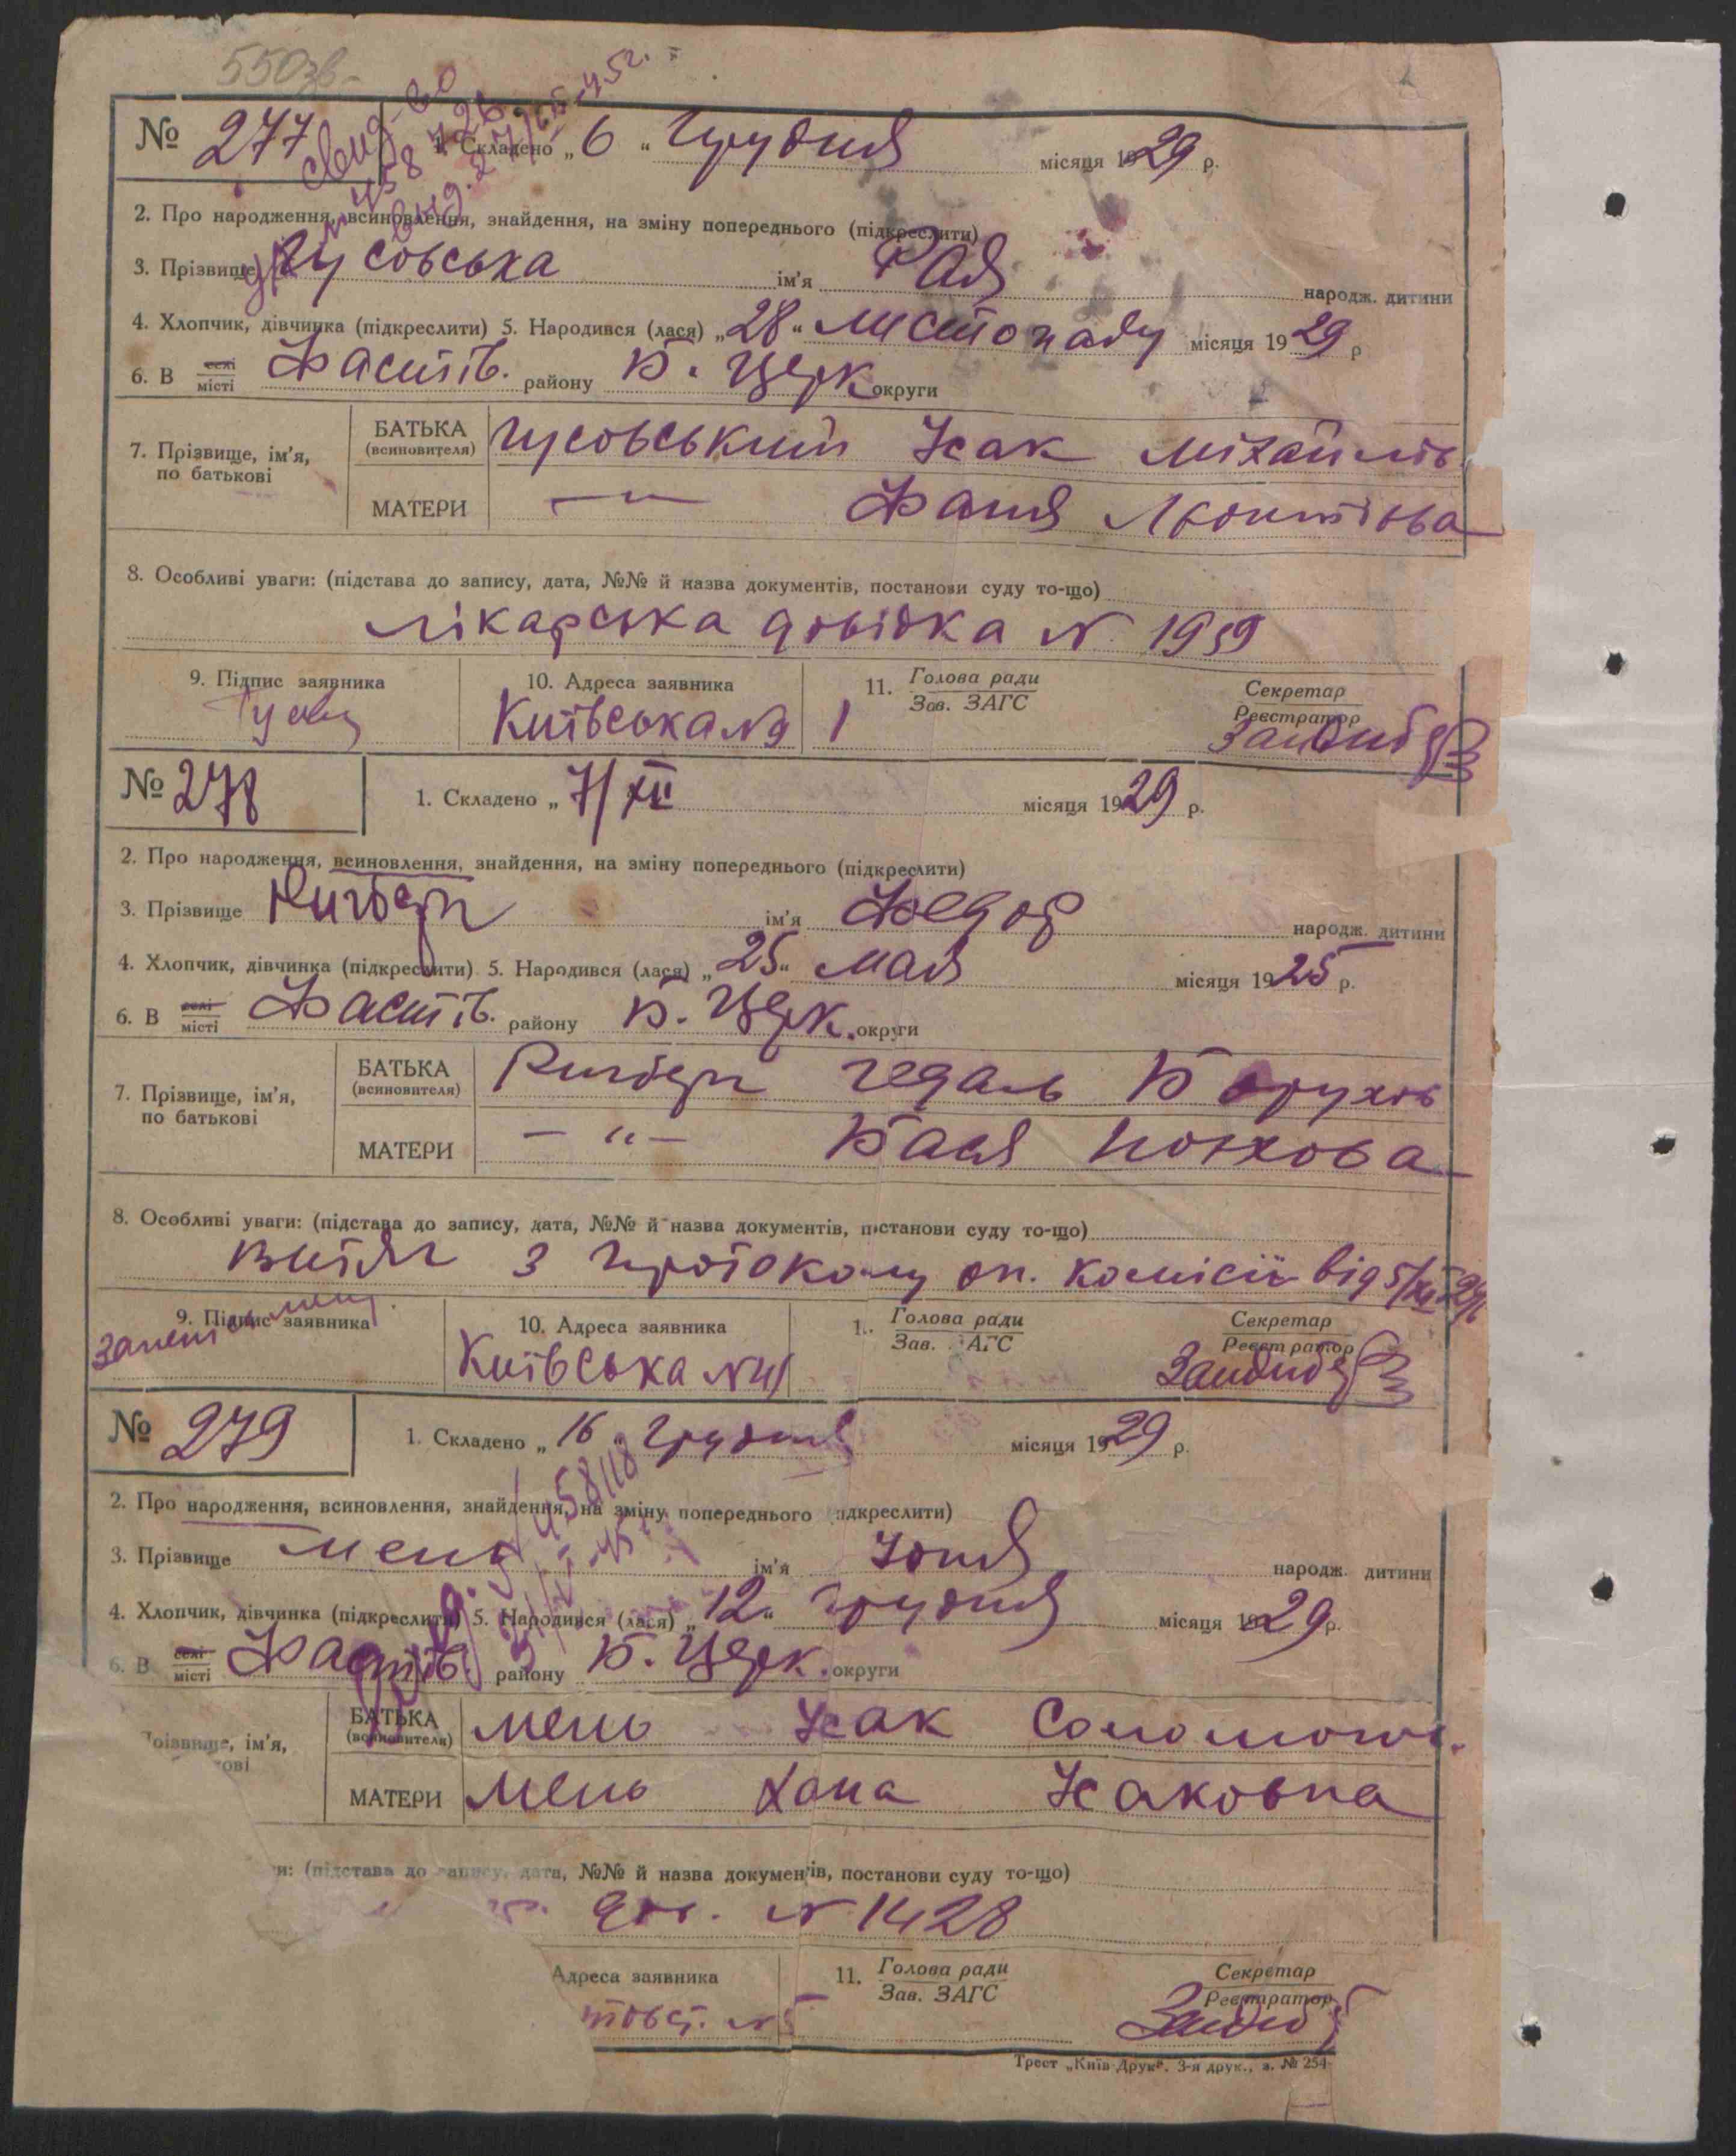 550зв-
№ 277
1. Складено „ 6 " Грудня місяця 1929 р.
2. Про народження, всиновлення, знайдення, на зміну попереднього (підкреслити)
3. Прізвище Гусовська ім'я Рая народж. дитини
4. Хлопчик, дівчинка (підкреслити) 5. Народився (лася) „28" листопаду місяця 1929 р
6. В селі місті Фастів. району Б. Церк округи
7. Прізвище, ім'я, по батькові
БАТЬКА (всиновителя) Гусовський Ісак Міхайлів
МАТЕРИ —"— Фаня
8. Особливі уваги: (підстава до запису, дата, №№ й назва документів, постанови суду то-що)
лікарська довідка N 1959
9. Підпис заявника 10. Адреса заявника 11. Голова ради Зав. ЗАГС Секретар Реєстратор
Київська №
№ 278
1. Складено „ 7/XII місяця 1929 р.
2. Про народження, всиновлення, знайдення, на зміну попереднього (підкреслити)
3. Прізвище ім'я Федор народж. дитини
4. Хлопчик, дівчинка (підкреслити) 5. Народився (лася) „25" мая місяця 1925 р.
6. В селі місті Фастів. району Б. Церк. округи
7. Прізвище, ім'я, по батькові
БАТЬКА (всиновителя) Гедаль Борухов
МАТЕРИ — " — Бася
8. Особливі уваги: (підстава до запису, дата, №№ й назва документів, постанови суду то-що)
Витяг з протоколу оп. комісії від 5/XII 29
9. Підпис заявника 10. Адреса заявника Голова ради Зав. ЗАГС Секретар Реєстратор
Київська N
№ 279
1. Складено „ 16 " Грудня місяця 1929 р.
2. Про народження, всиновлення, знайдення, на зміну попереднього (підкреслити)
3. Прізвище Мень ім'я народж. дитини
4. Хлопчик, дівчинка (підкреслити) 5. Народився (лася) „12" Грудня місяця 1929 р.
6. В селі місті Фастів. району Б. Церк. округи
Прізвище, ім'я,
БАТЬКА (всиновителя) Мень Ісак Соломонов.
МАТЕРИ Мень Хана Ісаковна
(підстава до запису, дата, №№ й назва документів, постанови суду то-що)
дов. N 1428
Адреса заявника 11. Голова ради Зав. ЗАГС Секретар Реєстратор
Трест „Київ-Друк". 3-я друк., з. № 254-